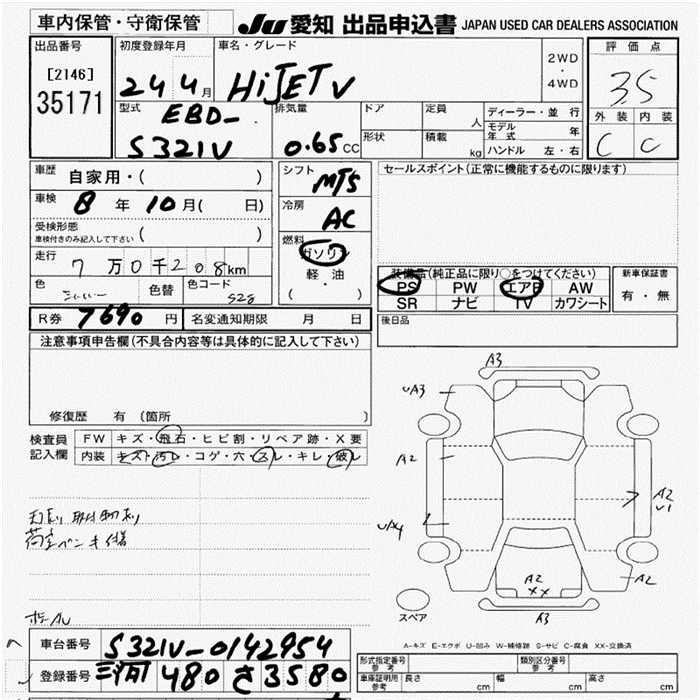 車内保管・守衛保管
JU 愛知 出品申込書 JAPAN USED CAR DEALERS ASSOCIATION
出品番号
[2146]
35171
初度登録年月
24 4月
車名・グレード
HiJET V
2WD
・
4WD
評価点
3.5
外装 内装
C C
型式
EBD-
S321V
排気量
0.65CC
ドア
形状
定員
人
積載
kg
ディーラー・並行
モデル年式
年
ハンドル 左・右
車歴
自家用・( )
車検
8年10月( 日)
受検形態
車検付きのみ記入して下さい ( )
走行
7万0千208km
色
色替
色コード
S28
R券 7690円
名変通知期限 月 日
シフト
MT5
冷房
AC
燃料
ガソリン
軽・油
( ・ )
セールスポイント(正常に機能するものに限ります)
装備品(純正品に限り○をつけてください)
PS PW エアB AW
SR ナビ TV カワシート
新車保証書
有・無
後日品
注意事項申告欄(不具合内容等は具体的に記入して下さい)
修復歴 有(箇所 )
検査員
記入欄
FW キズ・飛石・ヒビ割・リペア跡・X要
内装 キズ・汚レ・コゲ・穴・スレ・キレ・破レ
荷室ペンキ
A3
UA3
A2
UA4
A2
U1
A2
XX
A2
A3
スペア
A-キズ E-エクボ U-凹み W-補修跡 S-サビ C-腐食 XX-交換済
車台番号 S321V-0142954
登録番号 三河 480 さ 3580
形式指定番号
参考
類別区分番号
参考
車庫証明用
参考
長さ cm
幅 cm
高さ cm